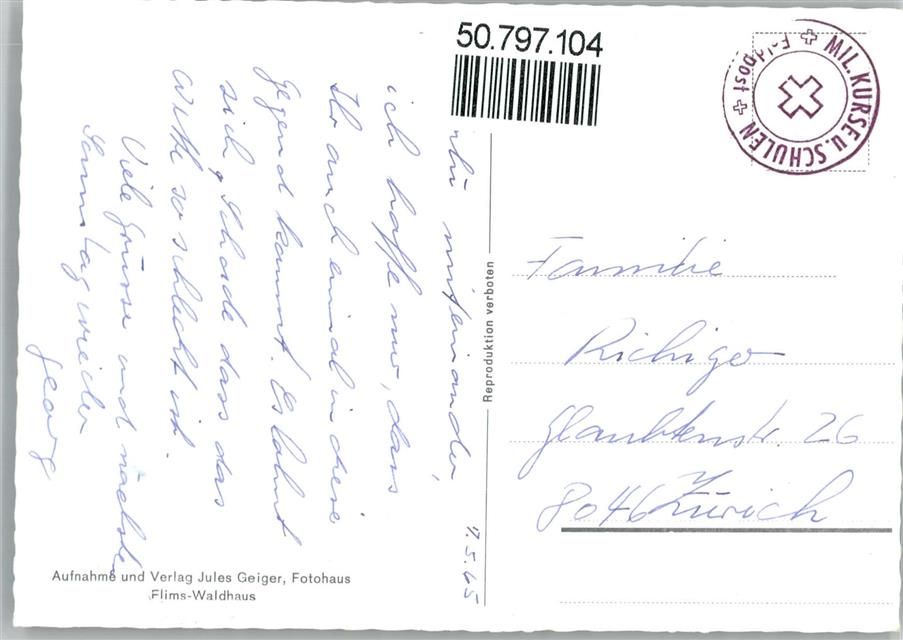 50.797.104
MIL. KURSE U. SCHULEN + Feldpost +
7.5.65
miteinander,
ich hoffe nur, dass
Ihr auch einmal in diese
Gegend kommt. Es lohnt
sich, Schade dass das
so schlecht ist.
Viele Grüsse und nächsten
Samstag wieder
Georg
Reproduktion verboten
Familie
Richiger
Glaubtenstr. 26
8046 Zürich
Aufnahme und Verlag Jules Geiger, Fotohaus
Flims-Waldhaus